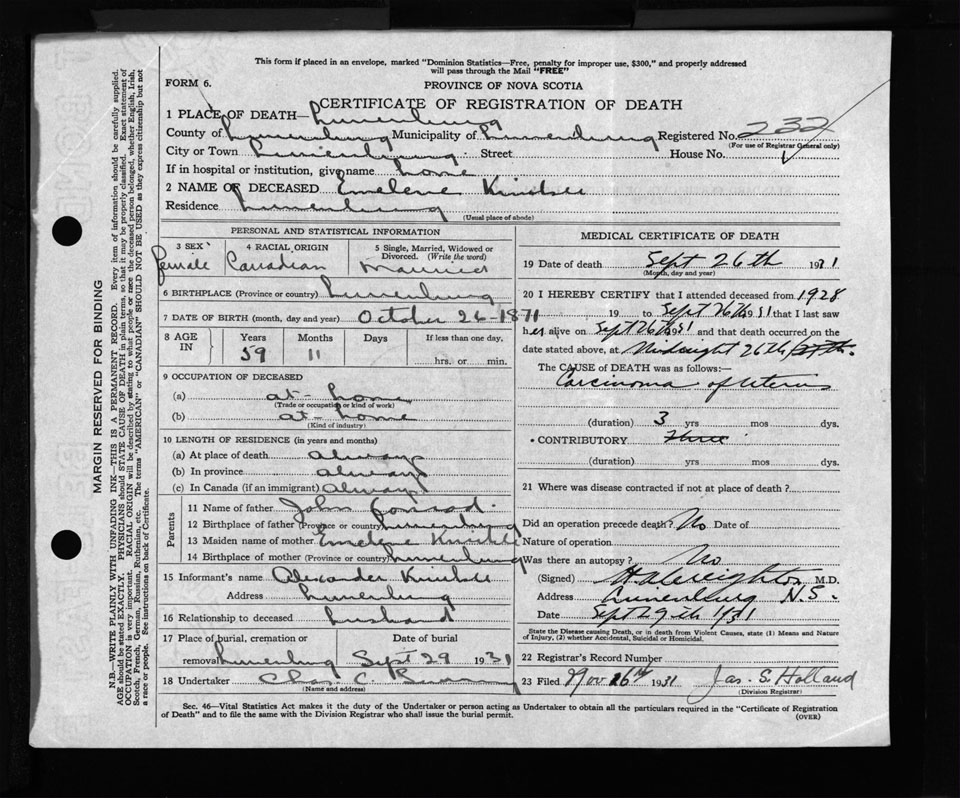 This form if placed in an envelope, marked "Dominion Statistics—Free, penalty for improper use, $300," and properly addressed
will pass through the Mail "FREE"
FORM 6.
PROVINCE OF NOVA SCOTIA
CERTIFICATE OF REGISTRATION OF DEATH
1 PLACE OF DEATH— Lunenburg
County of Lunenburg Municipality of Lunenburg Registered No. 232
(For use of Registrar General only)
City or Town Lunenburg Street House No.
If in hospital or institution, give name home
2 NAME OF DECEASED Emelene
Residence Lunenburg
(Usual place of abode)
PERSONAL AND STATISTICAL INFORMATION
3 SEX 4 RACIAL ORIGIN 5 Single, Married, Widowed or
Divorced. (Write the word)
female Canadian Married
6 BIRTHPLACE (Province or country) Lunenburg
7 DATE OF BIRTH (month, day and year) October 26-1871
8 AGE IN Years Months Days If less than one day,
59 11 hrs. or min.
9 OCCUPATION OF DECEASED
(a) at-home
(Trade or occupation or kind of work)
(b) at-home
(Kind of industry)
10 LENGTH OF RESIDENCE (in years and months)
(a) At place of death always
(b) In province always
(c) In Canada (if an immigrant) always
Parents
11 Name of father John Conrad
12 Birthplace of father (Province or country) Lunenburg
13 Maiden name of mother Emelene
14 Birthplace of mother (Province or country) Lunenburg
15 Informant's name Alexander
Address Lunenburg
16 Relationship to deceased husband
17 Place of burial, cremation or Date of burial
removal Lunenburg Sept 29 1931
18 Undertaker Chas. C.
(Name and address)
MEDICAL CERTIFICATE OF DEATH
19 Date of death Sept 26th 1931
(Month, day and year)
20 I HEREBY CERTIFY that I attended deceased from 1928
19 to Sept 26th 1931 that I last saw
her alive on Sept 26th 1931 and that death occurred on the
date stated above, at Midnight 26th/27th.
The CAUSE of DEATH was as follows:—
Carcinoma of Uterus
(duration) 3 yrs mos dys.
• CONTRIBUTORY Three
(duration) yrs mos dys.
21 Where was disease contracted if not at place of death?
Did an operation precede death? No Date of
Nature of operation
Was there an autopsy? No
(Signed) M.D.
Address Lunenburg N.S.
Date Sept 29th 1931
State the Disease causing Death, or in death from Violent Causes, state (1) Means and Nature
of Injury, (2) whether Accidental, Suicidal or Homicidal.
22 Registrar's Record Number
23 Filed Nov 26th 1931 Jas. S. Holland
(Division Registrar)
Sec. 46—Vital Statistics Act makes it the duty of the Undertaker or person acting as Undertaker to obtain all the particulars required in the "Certificate of Registration
of Death" and to file the same with the Division Registrar who shall issue the burial permit.
(OVER)
MARGIN RESERVED FOR BINDING
N.B.—WRITE PLAINLY WITH UNFADING INK—THIS IS A PERMANENT RECORD. Every item of information should be carefully supplied.
AGE should be stated EXACTLY. PHYSICIANS should STATE CAUSE OF DEATH in plain terms, so that it may be properly classified. Exact statement of
OCCUPATION is very important. RACIAL ORIGIN will be described by stating to what people or race the deceased person belonged, whether English, Irish,
Scotch, French, German, Russian, Ruthenian, etc. The terms "AMERICAN" or "CANADIAN" SHOULD NOT BE USED as they express citizenship but not
a race or people. See instructions on back of Certificate.